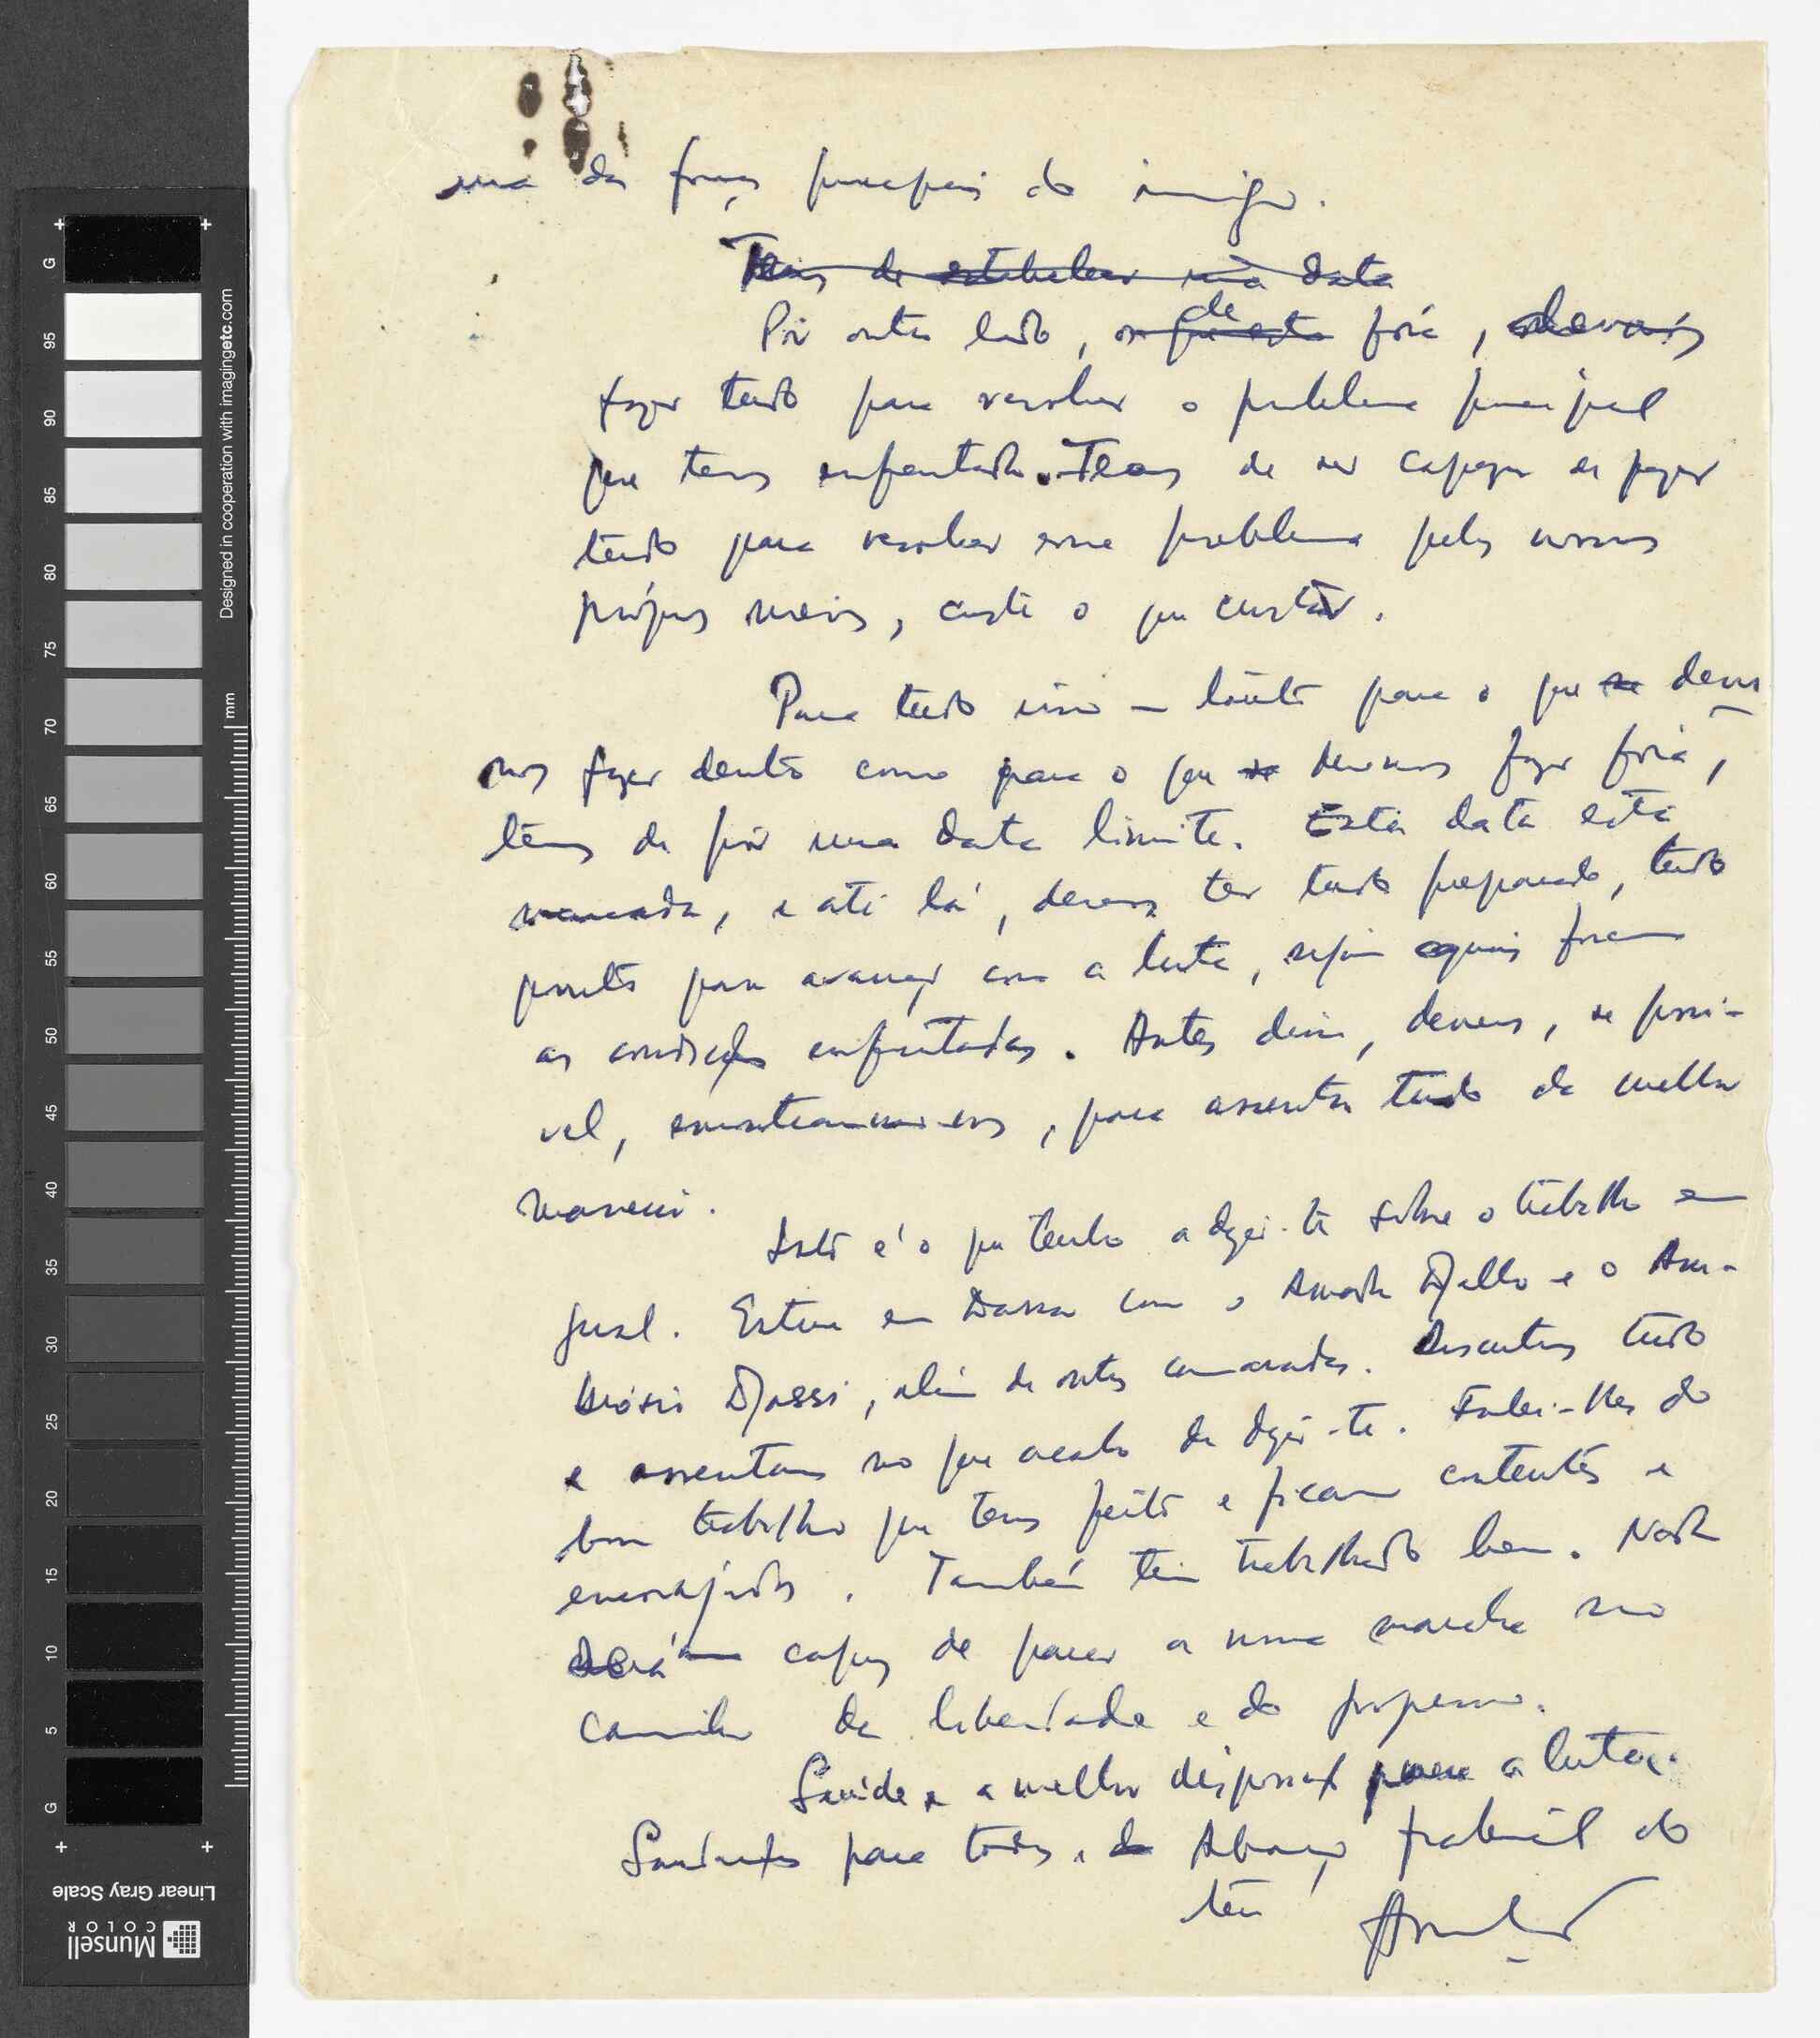 uma das forças principais do inimigo.
Temos de estabelecer uma data
Por outro lado, de fora, devemos
fazer tudo para resolver o problema principal
que temos enfrentado. Temos de ser capazes de fazer
tudo para resolver esse problema pelos nossos
próprios meios, custe o que custar.
Para tudo isso — tanto para o que se deve-
mos fazer dentro como para o que se devemos fazer fora,
temos de pôr uma data limite. Esta data está
marcada, e até lá, devemos ter tudo preparado, tudo
pronto para avançar com a luta, sejam quais forem
as condições enfrentadas. Antes disso, devemos, se possí-
vel, encontrarmo-nos, para assentar tudo da melhor
maneira.
Isto é o que tenho a dizer-te sobre o trabalho em
geral. Estive em com o Djallo e o Am-
brósio Djassi, além de outros camaradas. Discutimos tudo
e assentamos no que acabo de dizer-te. Falei-lhes do
bom trabalho que tens feito e ficaram contentes e
encorajados. Também têm trabalhado bem. Nada
será capaz de parar a nossa marcha no
caminho da liberdade e do progresso.
Saúde e a melhor disposição para a luta.
Saudações para todos. Abraço fraternal do
teu
Linear Gray Scale
Munsell
COLOR
Designed in cooperation with imagingetc.com
mm
G
95
90
85
80
75
70
65
60
55
50
45
40
35
30
25
20
15
10
5
G